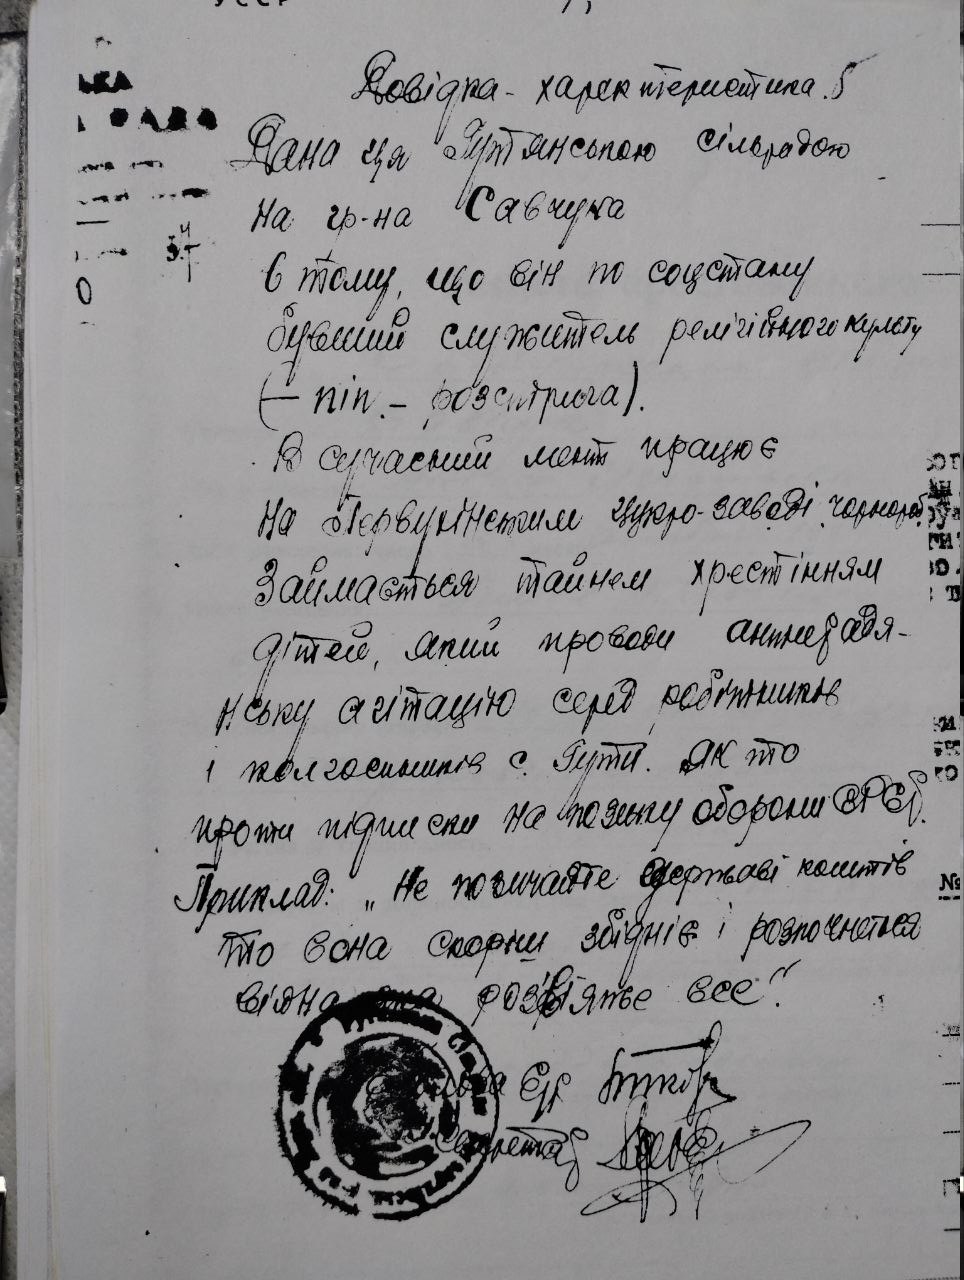 УССР
ЬКА
РАДА
Довідка - характеристика.
Дана ця Гутянською сільрадою
на гр-на Савчука
в тому, що він по соцстану
бувший служитель релігійного культу
(- піп. - розстрига).
В сучасний мент працює
на Первухінським цукро-заводі чорнороб
Займається тайнем хрестінням
дітей, який проводи антирадя-
нську агітацію серед робітників
і колгоспників с. Гути. Як то
проти підписки на позику оборони СРСР.
Приклад: „Не позичайте державі коштів
то вона скоріш збідніє і розпочнеться
війна яка розвіяже все".
Голова с/р
Секретар
№